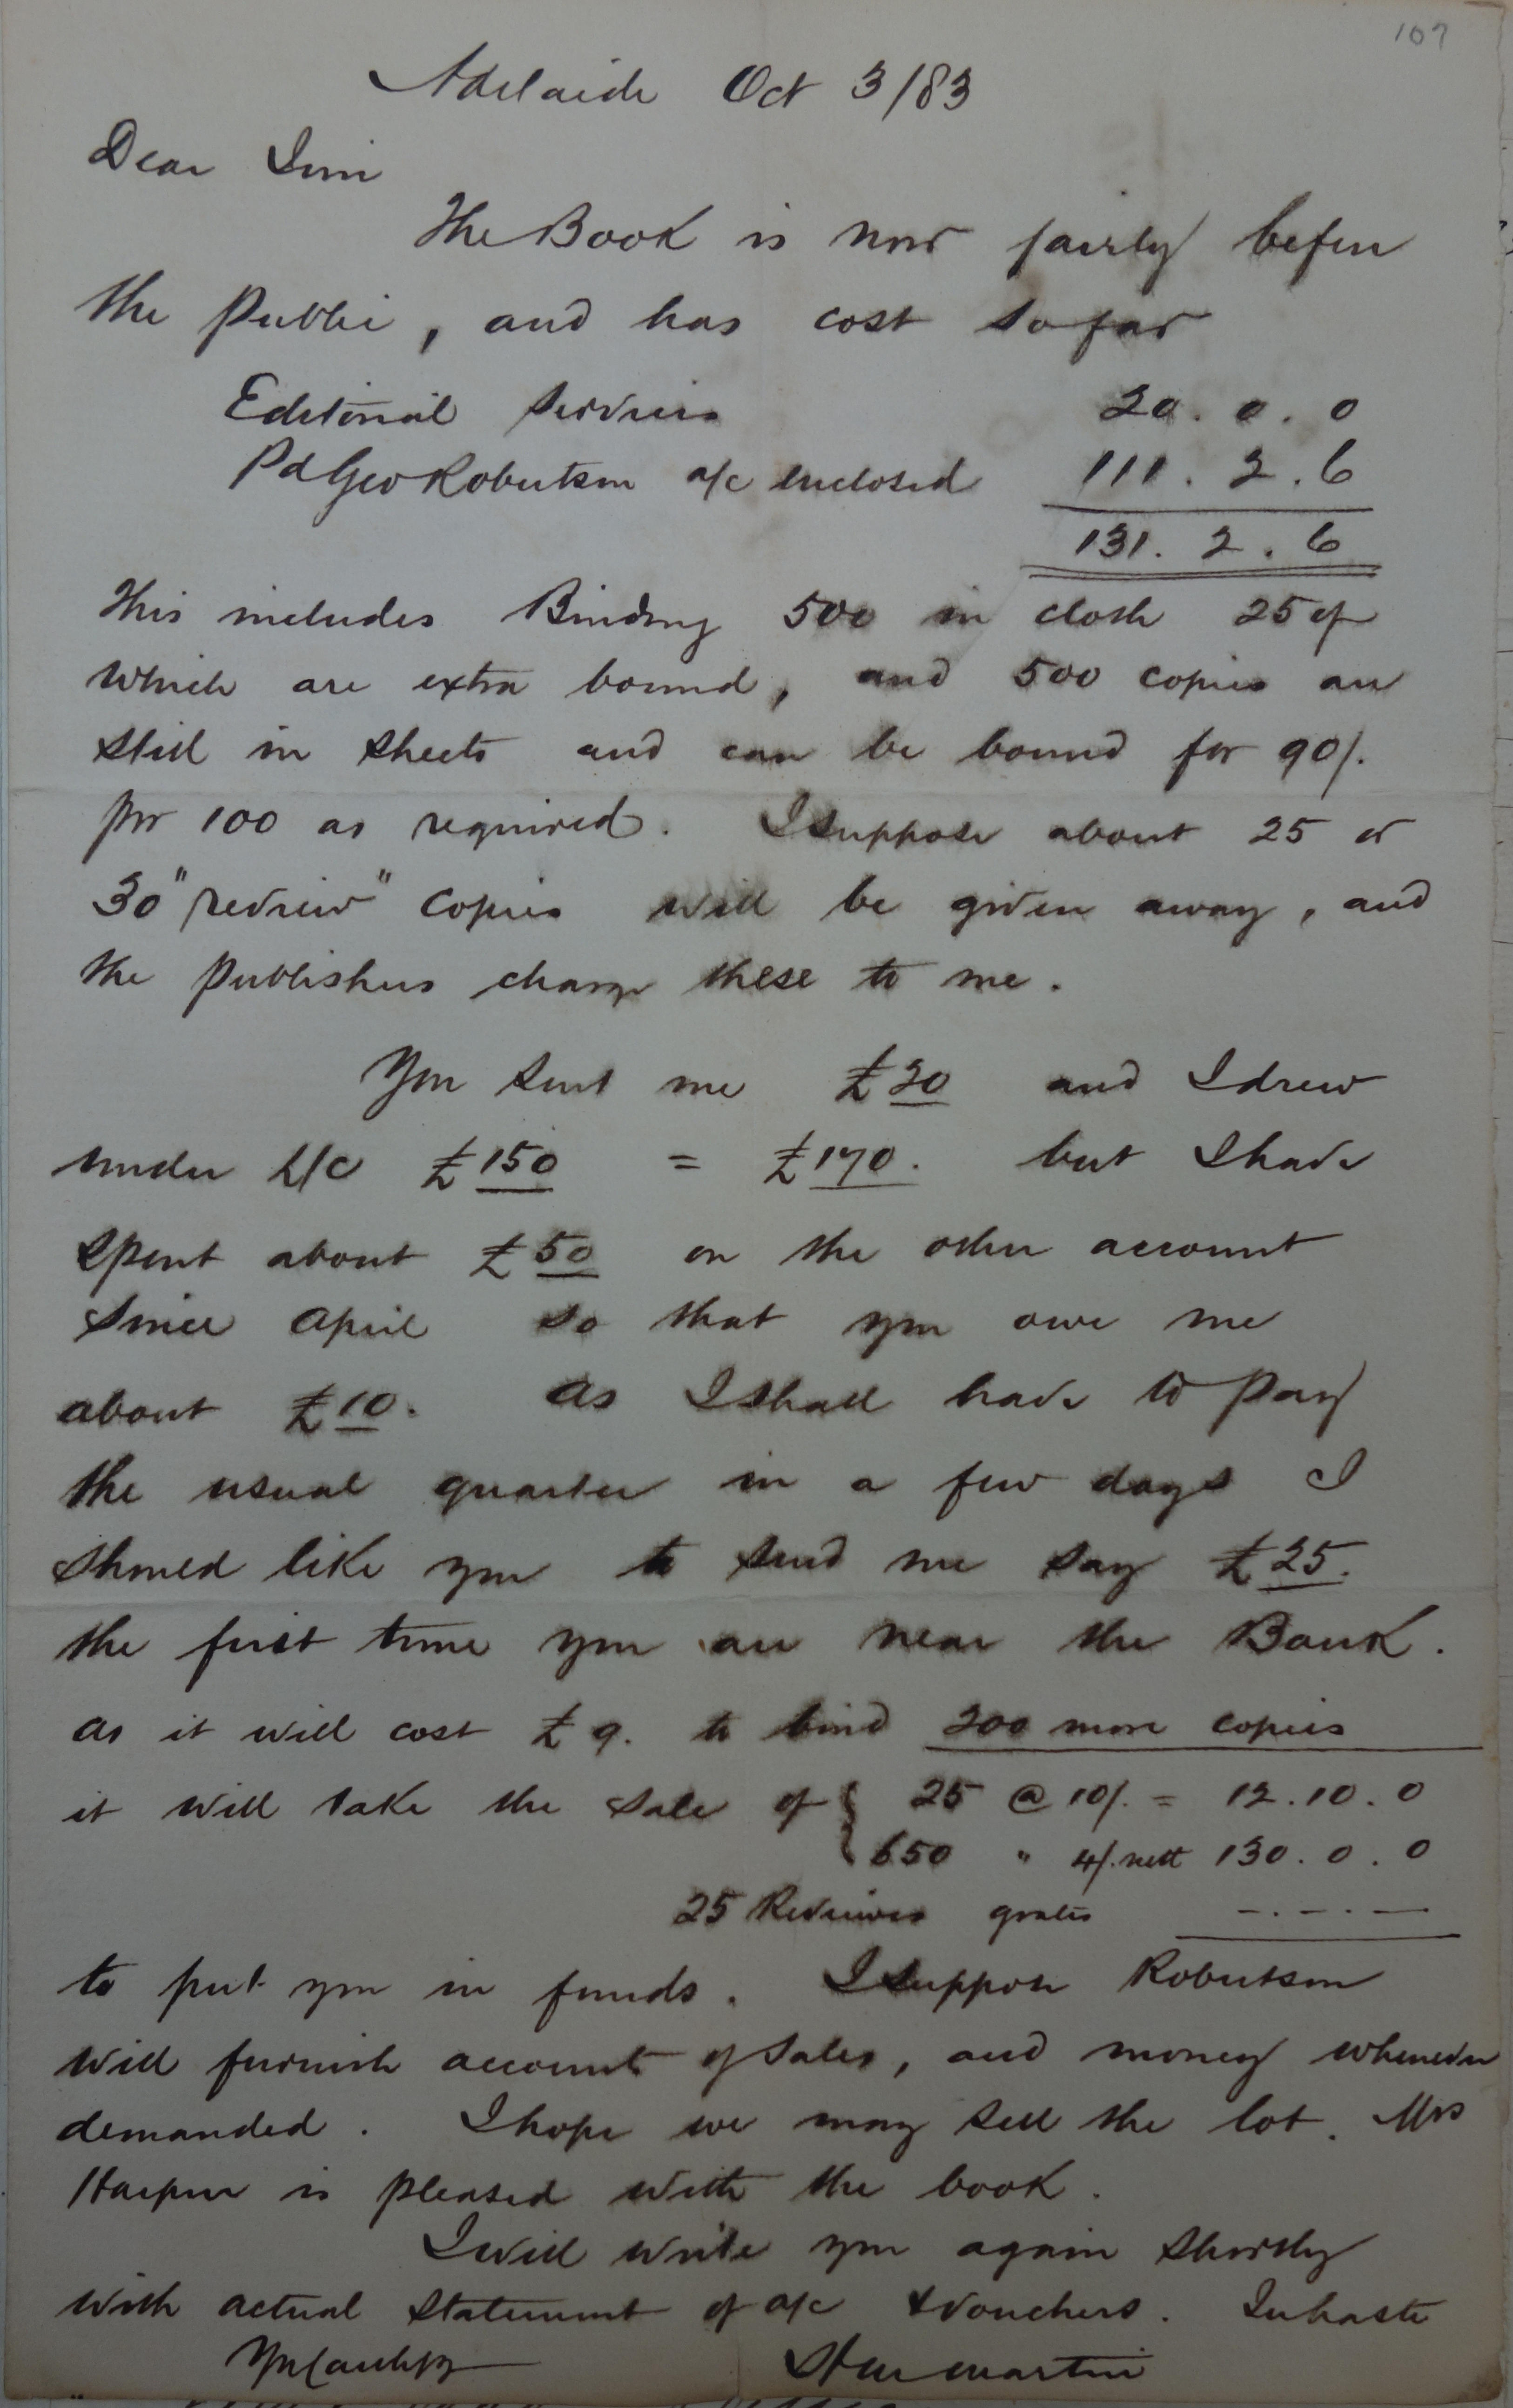 107
Adelaide Oct 3/83
Dear Sim
The Book is now fairly before
the public, and has cost so far
Editorial Services 20. 0. 0
Pd Geo Robertson a/c enclosed 111. 2. 6
131. 2. 6
This includes Binding 500 in cloth 25 of
which are extra bound, and 500 copies are
still in sheets and can be bound for 90/.
per 100 as required. I suppose about 25 or
30 "review" copies will be given away, and
the publishers charge these to me.
You sent me £20 and I drew
under L/C £150 = £170. but I have
spent about £50 on the other account
since April so that you owe me
about £10. As I shall have to pay
the usual quarter in a few days I
should like you to send me say £25.
the first time you are near the Bank.
as it will cost £9. to bind 200 more copies
it will take the sale of { 25 @ 10/. = 12.10.0
{ 650 " 4/. nett 130.0.0
25 Reviews gratis -.-.-
to put you in funds. I suppose Robertson
will furnish account of sales, and money whenever
demanded. I hope we may sell the lot. Mrs
Harpur is pleased with the book.
I will write you again shortly
with actual statement of a/c & vouchers. In haste
Martin